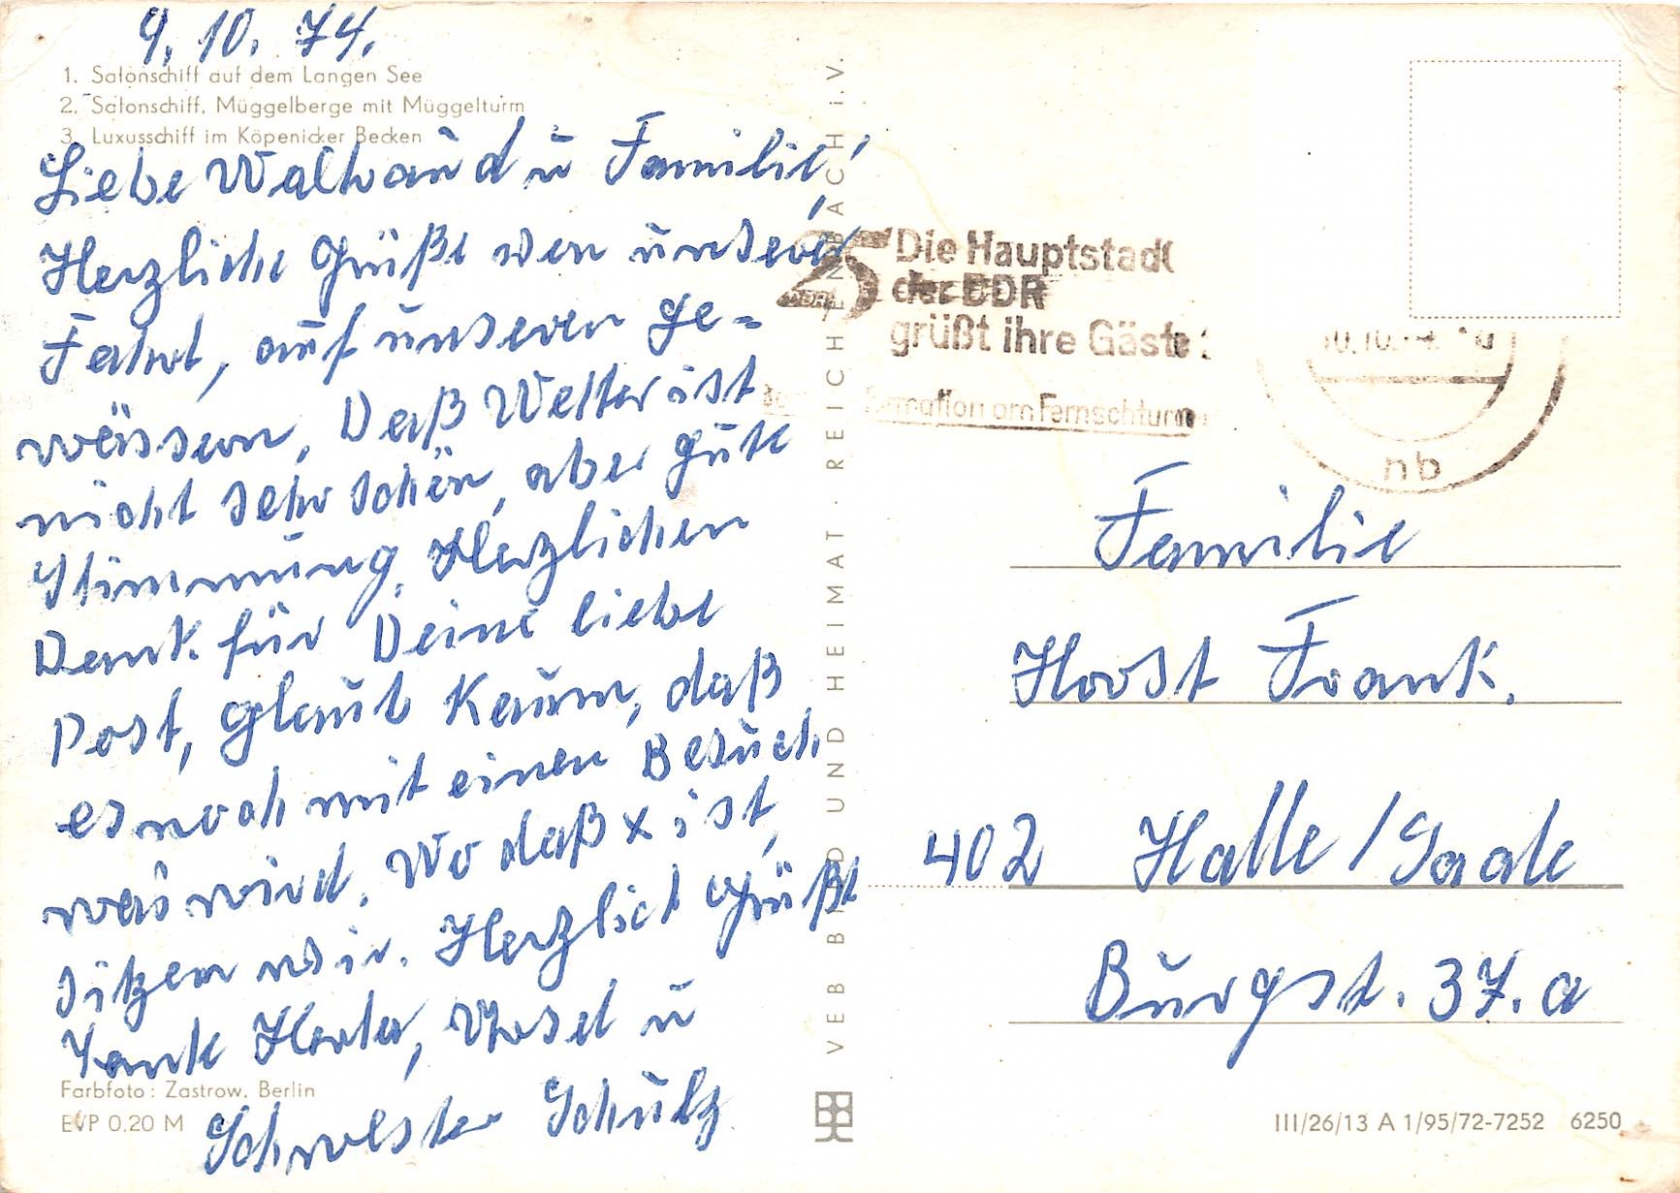 9.10.74.
1. Salonschiff auf dem Langen See
2. Salonschiff, Müggelberge mit Müggelturm
3. Luxusschiff im Köpenicker Becken
Liebe Waltraud u Familie!
Herzliche Grüße von unserer
Fahrt, auf unseren Ge=
wässern, Daß Wetter ist
nicht sehr schön, aber gute
Stimmung. Herzlichen
Dank für Deine liebe
Post, glaub kaum, daß
es noch mit einen Besuch
was wird. Wo daß x ist,
sitzen wir. Herzlich Grüßt
Tante Herta, u
Schwester Schulz
Farbfoto: Zastrow, Berlin
EVP 0,20 M
VEB BILD UND HEIMAT · REICHENBACH i. V.
25 Die Hauptstadt
der DDR
grüßt ihre Gäste
am Fernsehturm
nb
Familie
Horst Frank.
402 Halle/Saale
Burgst. 37. a
III/26/13 A 1/95/72-7252 6250